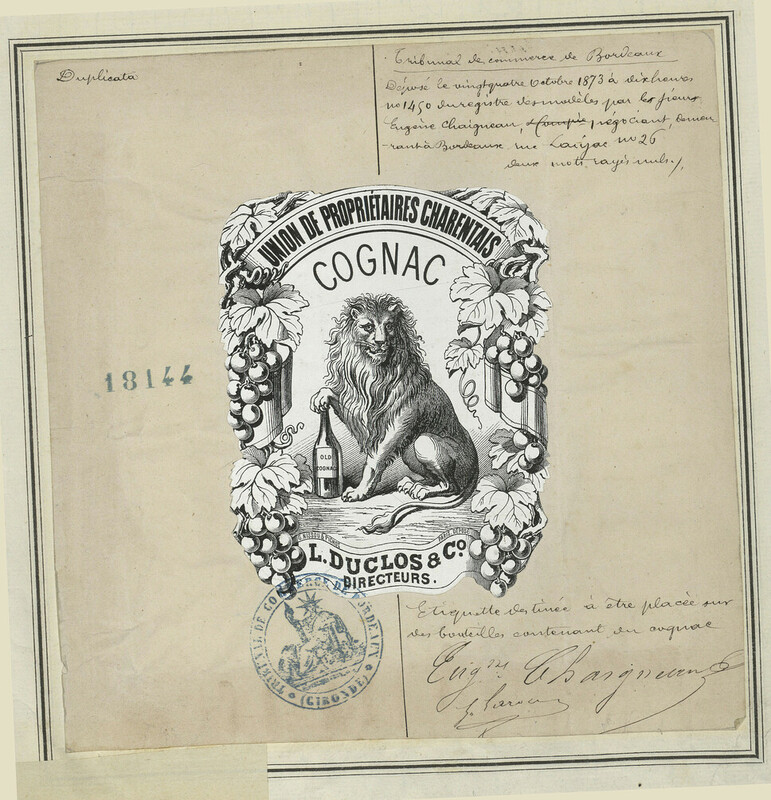 Duplicata
Tribunal de commerce de Bordeaux
Déposé le vingtquatre Octobre 1873 à dix heures
no 1450 du registre des modèles par le sieur
Eugène Chaigneau, & Compie négociant, demeu
-rant à Bordeaux rue no 26
deux mots rayés nuls ./.
UNION DE PROPRIÉTAIRES CHARENTAIS
COGNAC
18144
OLD
COGNAC
L. DUCLOS & Co
DIRECTEURS.
TRIBUNAL DE COMMERCE DE BORDEAUX
(GIRONDE)
Etiquette destinée à être placée sur
des bouteilles contenant du cognac
Eugne Chaigneau